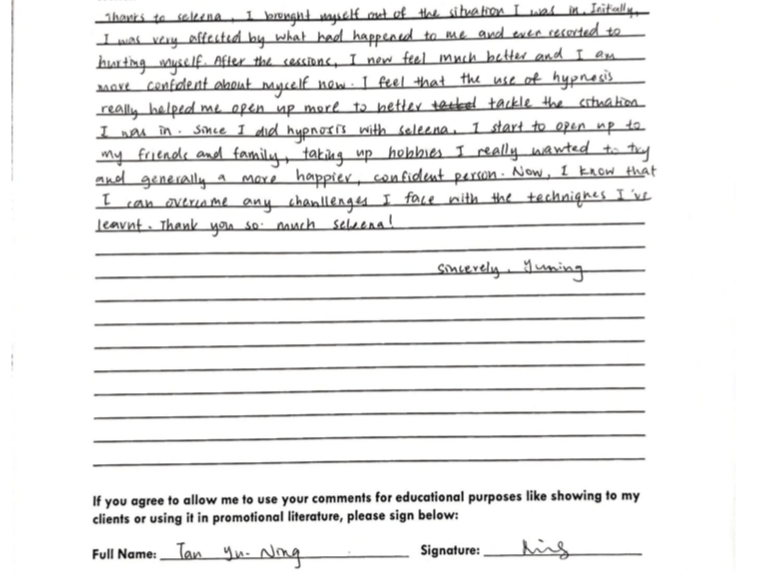 Thanks to seleena, I brought myself out of the situation I was in. Initially,
I was very affected by what had happened to me and even resorted to
hurting myself. After the sessions, I now feel much better and I am
more confident about myself now. I feel that the use of hypnosis
really helped me open up more to better tackle the situation
I was in. Since I did hypnosis with seleena, I start to open up to
my friends and family, taking up hobbies I really wanted to try
and generally a more happier, confident person. Now, I know that
I can overcome any challenges I face with the techniques I've
learnt. Thank you so much seleena!
sincerely, Yuning
If you agree to allow me to use your comments for educational purposes like showing to my
clients or using it in promotional literature, please sign below:
Full Name: Tan Yu-Ning Signature: